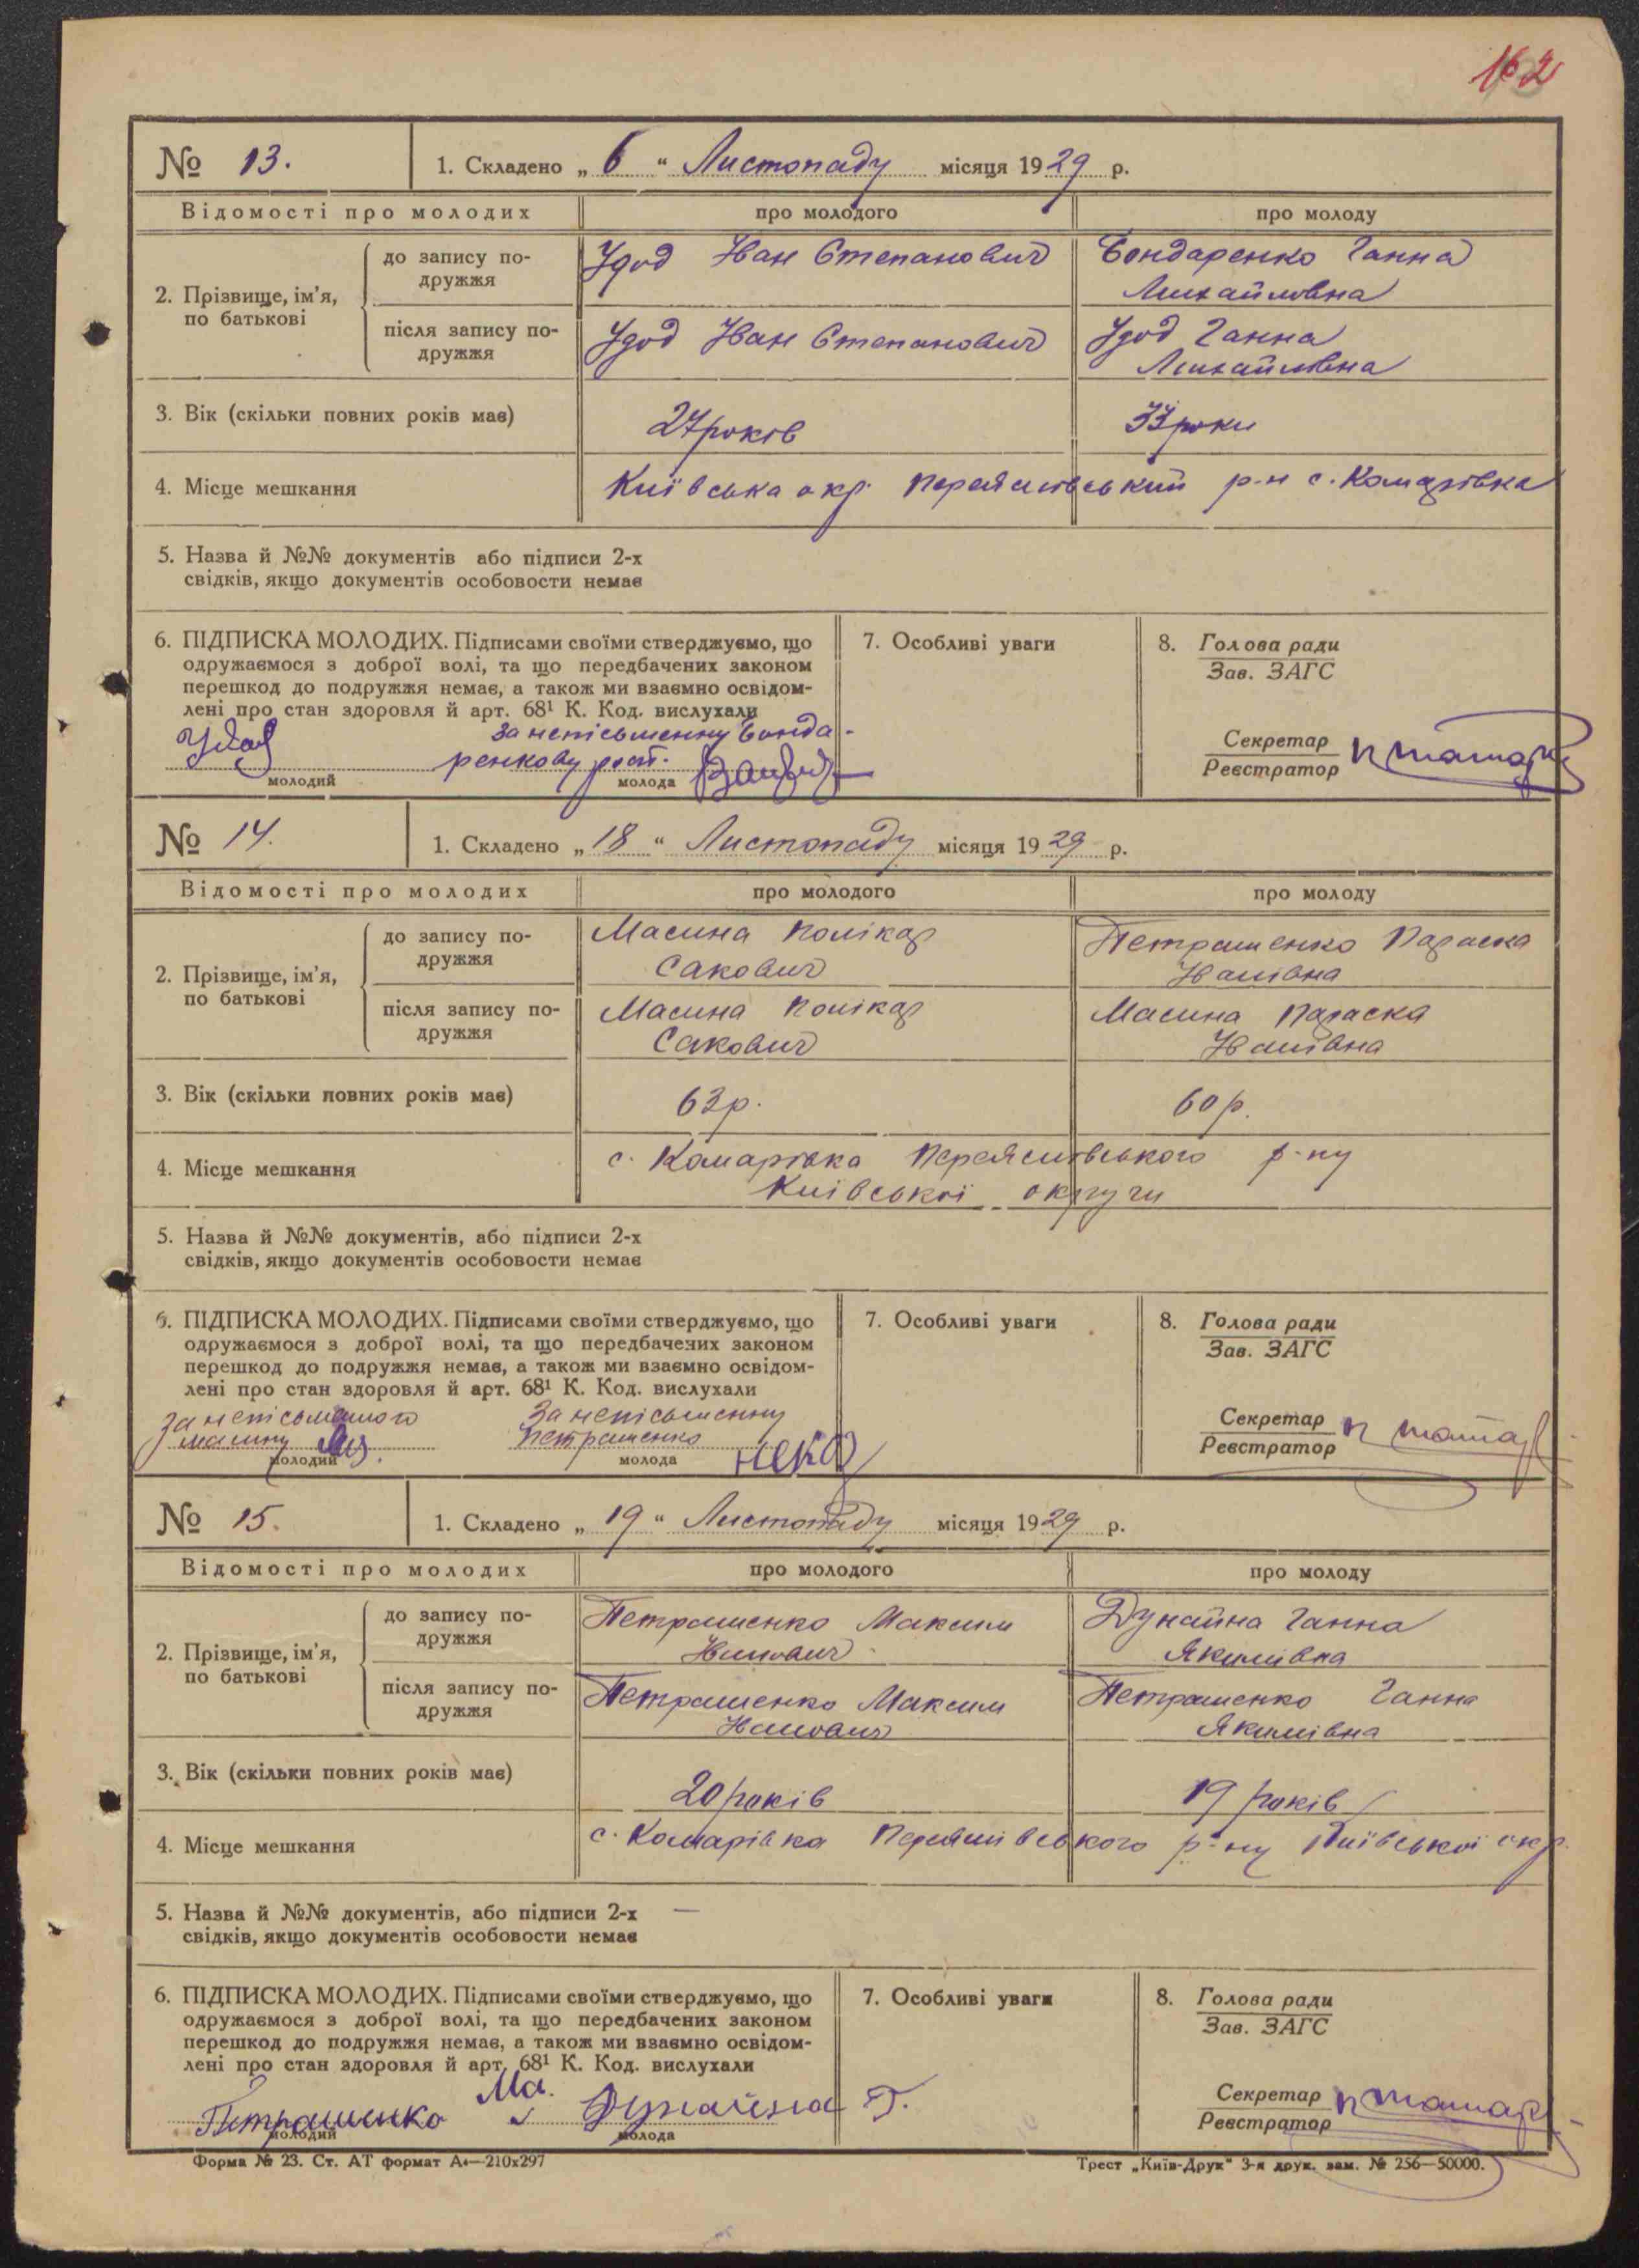 162
№ 13. 1. Складено „6“ Листопаду місяця 1929 р.
Відомості про молодих про молодого про молоду
2. Прізвище, ім'я, по батькові
до запису подружжя
Удод Іван Степанович
Бондаренко Ганна
Михайловна
після запису подружжя
Удод Іван Степанович
Удод Ганна
Михайловна
3. Вік (скільки повних років має) 27 років 33 роки
4. Місце мешкання Київська окр. Переяславський р-н с. Комарівка
5. Назва й №№ документів або підписи 2-х
свідків, якщо документів особовости немає
6. ПІДПИСКА МОЛОДИХ. Підписами своїми стверджуємо, що
одружаємося з доброї волі, та що передбачених законом
перешкод до подружжя немає, а також ми взаємно освідом-
лені про стан здоровля й арт. 68¹ К. Код. вислухали
За неписьменну Бонда-
ренкову розп.
молодий молода
7. Особливі уваги
8. Голова ради
Зав. ЗАГС
Секретар
Реєстратор
№ 14. 1. Складено „18“ Листопаду місяця 1929 р.
Відомості про молодих про молодого про молоду
2. Прізвище, ім'я, по батькові
до запису подружжя
Масина Полікар
Сакович
Петрашенко Параска
Іванівна
після запису подружжя
Масина Полікар
Сакович
Масина Параска
Іванівна
3. Вік (скільки повних років має) 63 р. 60 р.
4. Місце мешкання с. Комарівка Переяславського р-ну
Київської округи
5. Назва й №№ документів, або підписи 2-х
свідків, якщо документів особовости немає
6. ПІДПИСКА МОЛОДИХ. Підписами своїми стверджуємо, що
одружаємося з доброї волі, та що передбачених законом
перешкод до подружжя немає, а також ми взаємно освідом-
лені про стан здоровля й арт. 68¹ К. Код. вислухали
За неписьменного
Масину
За неписьменну
Петрашенко
молодий молода
7. Особливі уваги
8. Голова ради
Зав. ЗАГС
Секретар
Реєстратор
№ 15. 1. Складено „19“ Листопаду місяця 1929 р.
Відомості про молодих про молодого про молоду
2. Прізвище, ім'я, по батькові
до запису подружжя
Петрашенко Максим
Іванович
Дунайна Ганна
Якимівна
після запису подружжя
Петрашенко Максим
Іванович
Петрашенко Ганна
Якимівна
3. Вік (скільки повних років має) 20 років 19 років
4. Місце мешкання с. Комарівка Переяславського р-ну Київської окр.
5. Назва й №№ документів, або підписи 2-х —
свідків, якщо документів особовости немає
6. ПІДПИСКА МОЛОДИХ. Підписами своїми стверджуємо, що
одружаємося з доброї волі, та що передбачених законом
перешкод до подружжя немає, а також ми взаємно освідом-
лені про стан здоровля й арт. 68¹ К. Код. вислухали
Петрашенко Ма. Дунайна Г.
молодий молода
7. Особливі уваги
8. Голова ради
Зав. ЗАГС
Секретар
Реєстратор
Форма № 23. Ст. АТ формат А4—210х297
Трест „Київ-Друк“ 3-я друк. зам. № 256—50000.